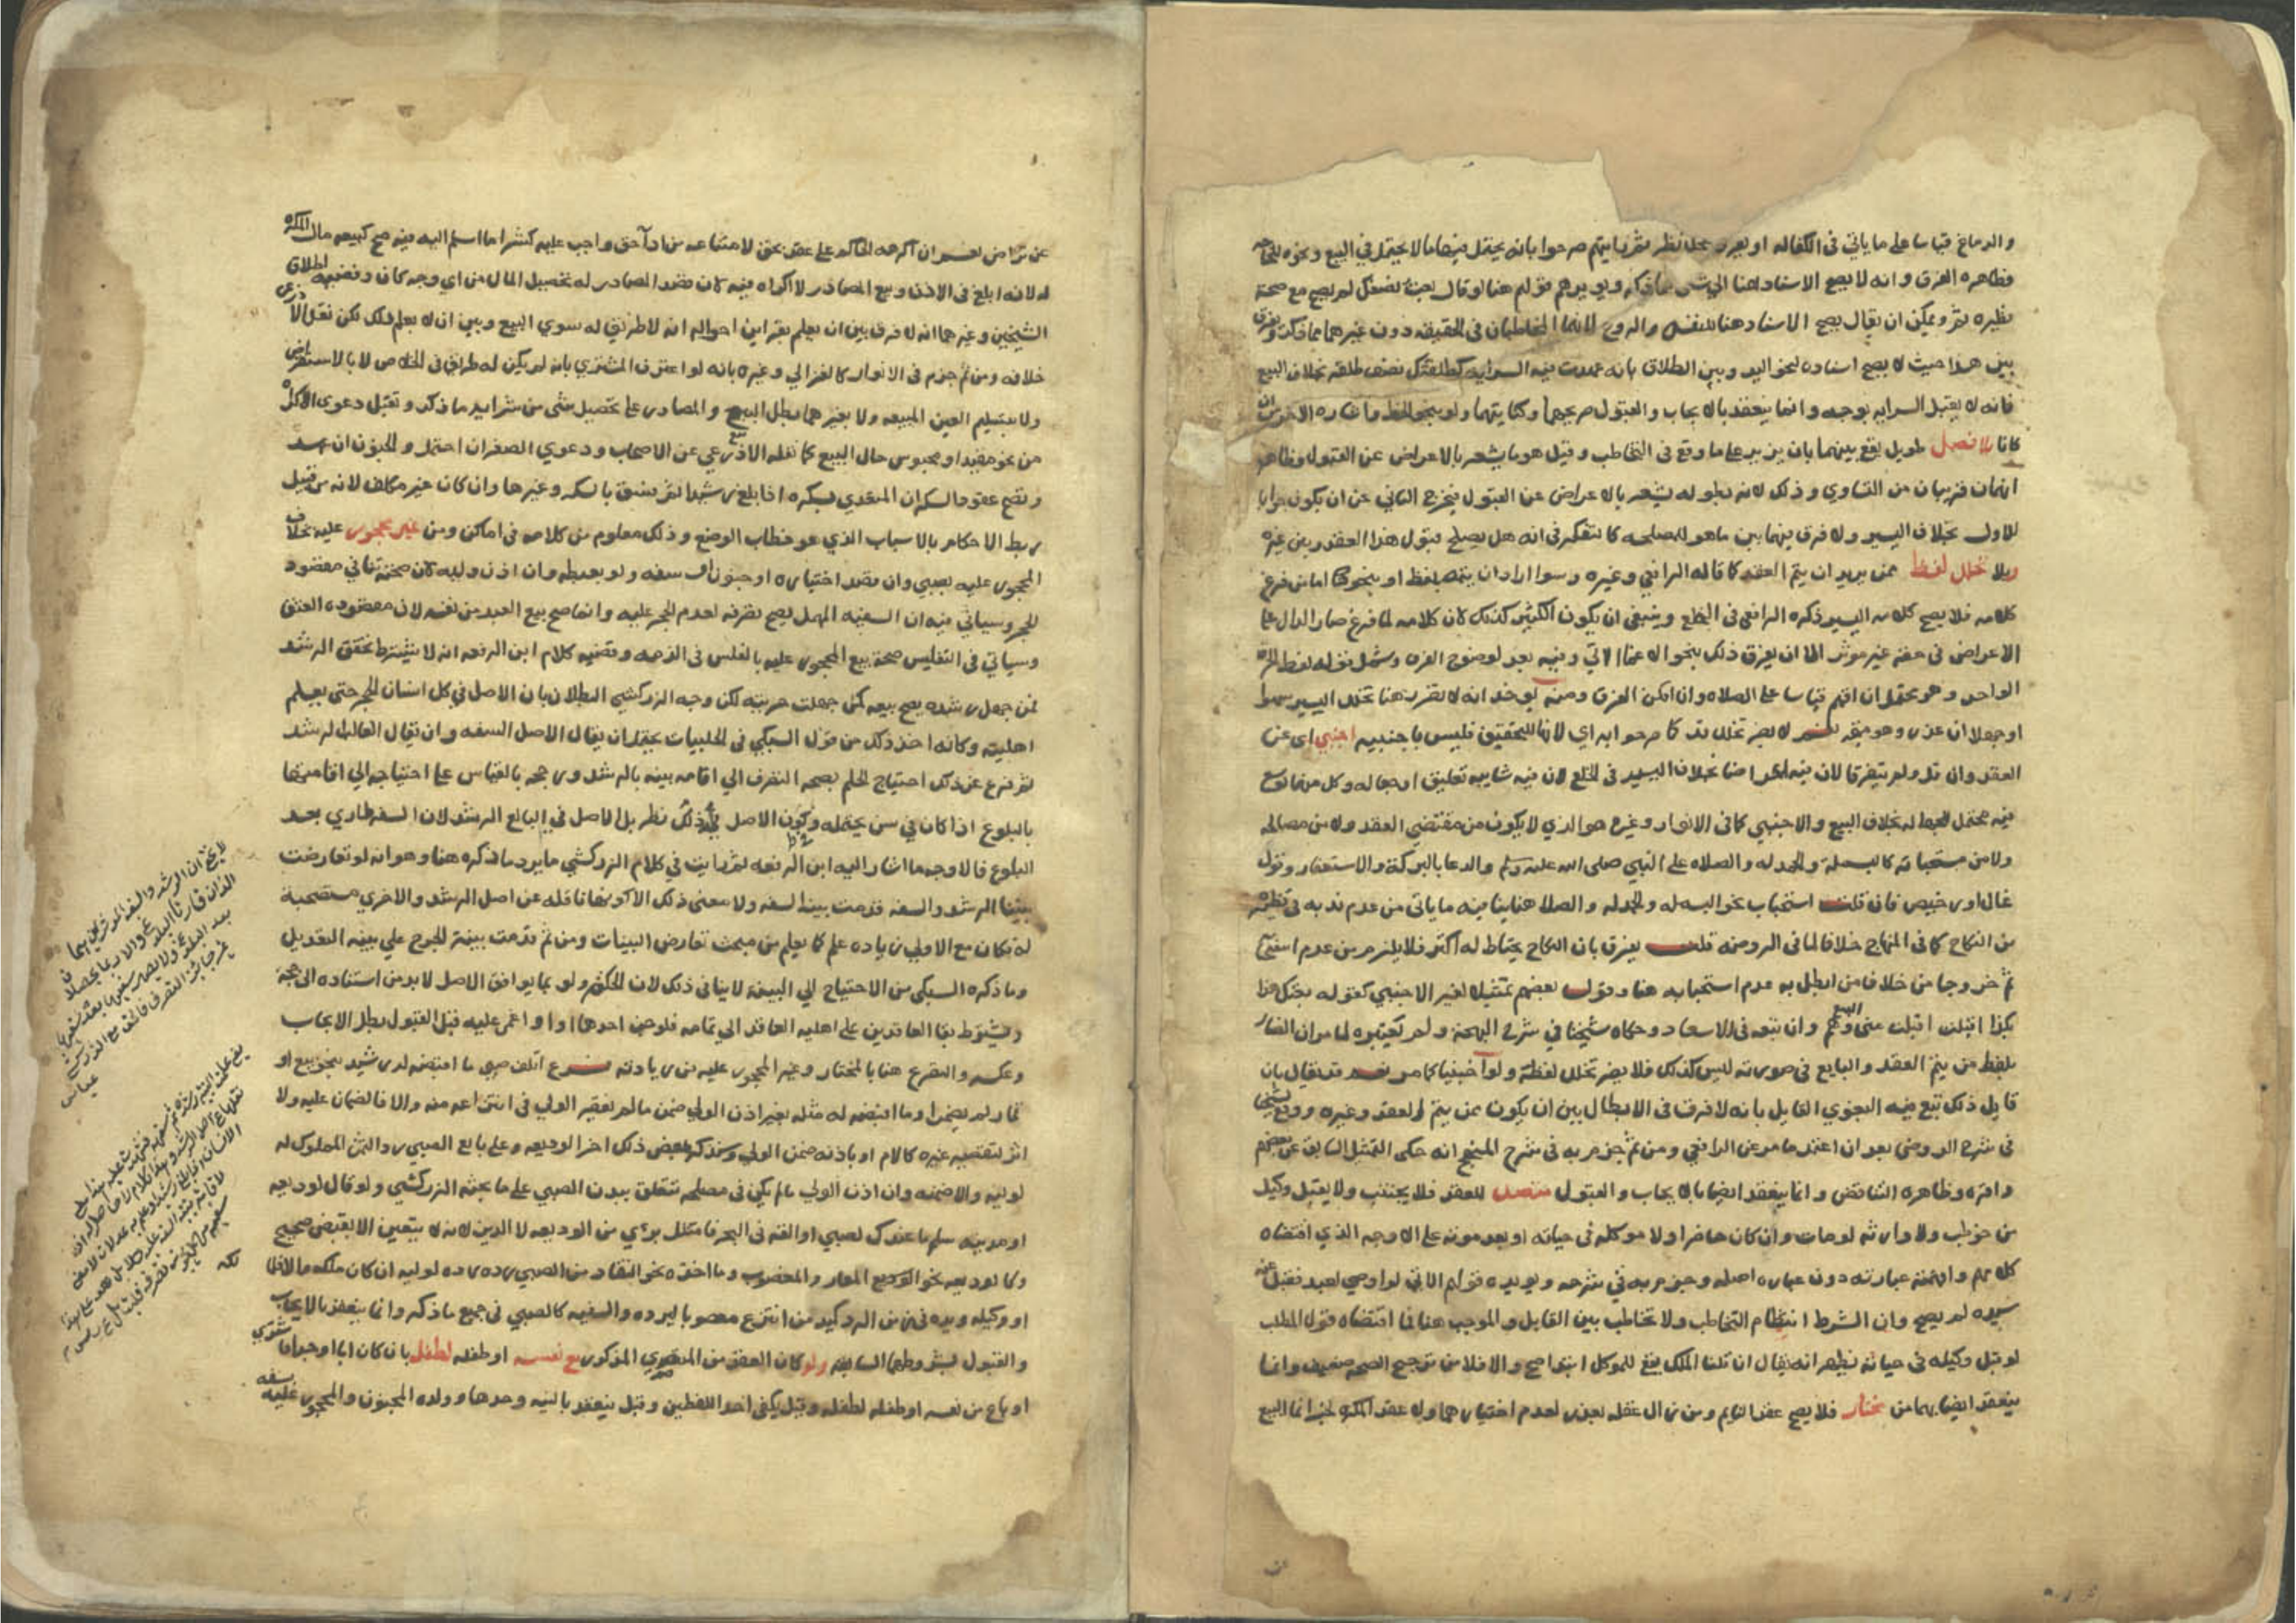 والدماغ قياسا على ما ياتي في الكفاله او يفرق محل نظر ثم رايتهم صرحوا بانه يحتمل فيها ما لا يحتمل في البيع ونحوه
فظاهره الفرق وانه لا يصح الاسناد هنا الى شي مما ذكر ويويده قولهم هنا لو قال بعت لم يصح مع صحة
نظيره ثم ويمكن ان يقال يصح الاسناد هنا للنفس والروح لانهما المخاطبان في الحقيقه دون غيرهما مما ذكر ويفرق
بين هذا حيث لا يصح اسناده لنحو اليد وبين الطلاق بانه عهدت فيه السرايه كطلقتك نصف طلقه بخلاف البيع
فانه لا يقبل السرايه بوجه وانما ينعقد بالايجاب والقبول صريحهما وكنايتهما ولو بنحو الخط واشاره الاخرس ان
كانا بلا فصل طويل يقع بينهما بان يزيد على ما وقع في التخاطب وقيل هو ما يشعر بالاعراض عن القبول وظاهر
انهما قريبان من التساوي وذلك لان طوله يشعر بالاعراض عن القبول فيخرج الثاني عن ان يكون جوابا
للاول بخلاف اليسير ولا فرق فيهما بين ما هو للمصلحه كالتفكر في انه هل يصلح قبول هذا العقد وبين غيره
وبلا تخلل لفظ ممن يريد ان يتم العقد كما قاله الرافعي وغيره وسوا اراد ان يتمه بلفظ او بنحو كتابة اما من فرغ
كلامه فلا يصح كلامه اليسير ذكره الرافعي في الخلع وينبغي ان يكون الكثير كذلك لان كلامه لما فرغ صار الدال على
الاعراض في حقه غير موثر الا ان يفرق ذلك بنحو الاغما الاتي وفيه بعد لوضوح الفرق وشمل قوله لفظ الحرف
الواحد وهو محتمل ان افهم قياسا على الصلاه وان امكن الفرق ومنه يوخذ انه لا يضر هنا تخلل اليسير سهوا
او جهلا ان عذر وهو متجه نعم لا يضر تخلل قد كما صرحوا به اي لانها للتحقيق فليس باجنبيه اجنبي اي عن
العقد وان قل ولم يتفرقا لان فيه اعراضا بخلاف اليسير في الخلع لان فيه شايبه تعليق او جعاله وكل منهما
فيه محتمل للجهاله بخلاف البيع والاجنبي كما في الانوار وغيره هو الذي لا يكون من مقتضي العقد ولا من مصالحه
ولا من مستحباته كالبسملة والحمدله والصلاه على النبي صلى الله عليه وسلم والدعا بالبركة والاستغفار وقول
غال او رخيص فان قلت استحباب نحو البسمله والحمدله والصلاه هنا ينافيه ما ياتي من عدم ندبه في نظيره
من النكاح كما في المنهاج خلافا لما في الروضه قلت يفرق بان النكاح يحتاط له اكثر فلا يلزم من عدم استحبابه
ثم خروجا من خلاف من ابطل به عدم استحبابه هنا وقول بعضهم تمثيلا لغير الاجنبي كقوله بعتك هذا
بكذا اقبلت اقبلت مني البيع وان تبعه في الاسعاد وحكاه شيخنا في شرح البهجة ولم يتعقبوه لما مر ان الضار
تلفظ من يتم العقد والبايع في صورته ليس كذلك فلا يضر تخلل لفظه ولو اجنبيا كما مر نعم قد يقال بان
قايل ذلك تبع فيه البغوي القايل بانه لا فرق في الابطال بين ان يكون ممن يتم العقد وغيره ووقع لشيخنا
في شرح الروض بعد ان اعتمد ما مر عن الرافعي ومن ثم جزم به في شرح المنهج انه حكى التمثيل السابق عن بعضهم
واقره وظاهره التناقض وانما ينعقد ايضا بالايجاب والقبول متصل للعقد فلا يجتنب ولا يقبل وكيل
من خوطب ولا وارثه لو مات وان كان حاضرا ولا موكله في حياته او بعد موته على الاوجه الذي اقتضاه
كلامهم وافهمته عبارته دون عباره اصله وجزم به في شرحه ويويده قولهم الاتي لو اوصي لعبد فقبل عنه
سيده لم يصح وان الشرط انتظام التخاطب ولا تخاطب بين القابل والموجب هنا فما اقتضاه قول المطلب
لو قبل وكيله في حياته يظهر انه يقال ان قلنا الملك يقع للموكل ابتدا صح والا فلا من ترجيح الصحه ضعيف وانما
ينعقد ايضا بهما من مختار فلا يصح عقد النايم ومن زال عقله بعذر لعدم اختيارهما ولا عقد المكره لخبر انما البيع
عن تراض نعم ان اكرهه الحاكم على عقد بحق لامتناعه من ادا حق واجب عليه كشرا ما اسلم اليه فيه صح كبيعه مال المكره
له لانه ابلغ في الاذن وبيع المصادر لا اكراه فيه لان قصد المصادر له تحصيل المال من اي وجه كان وقضيه اطلاق
الشيخين وغيرهما انه لا فرق بين ان يعلم بقراين احواله انه لا طريق له سوي البيع وبين ان لا يعلم ذلك لكن نقل الاذرعي
خلافه ومن ثم جزم في الانوار كالغزالي وغيره بانه لو اعترف المشتري بانه لم يكن له طريق في الخلاص لا بالاستقراض
ولا بتسليم العين المبيعه ولا بغيرهما بطل البيع والمصادر على تحصيل شي من شرايه ما ذكر وتقبل دعوي الاكراه
من نحو مقيد او محبوس حال البيع كما نقله الاذرعي عن الاصحاب ودعوي الصغر ان احتمل والجنون ان عهد
وتصح عقود السكران المتعدي بسكره اذا بلغ رشيدا ثم فسق بالسكر وغيرها وان كان غير مكلف لانه من قبيل
ربط الاحكام بالاسباب الذي هو خطاب الوضع وذلك معلوم من كلامه في اماكن ومن غير محجور عليه بخلاف
المحجور عليه بصبي وان قصد اختباره او جنون او سفه ولو بغبطه وان اذن وليه لان صحته تنافي مقصود
الحجر وسياتي فيه ان السفيه المهمل يصح تصرفه لعدم الحجر عليه وانما صح بيع العبد من نفسه لان مقصوده العتق
وسياتي في التفليس صحة بيع المحجور عليه بالفلس في الذمه وقضيه كلام ابن الرفعه انه لا يشترط تحقق الرشد
فمن جهل رشده يصح بيعه كمن جهلت حريته لكن وجه الزركشي البطلان بان الاصل في كل انسان الحجر حتى يعلم
اهليته وكانه اخذ ذلك من قول السبكي في الحلبيات يحتمل ان يقال الاصل السفه وان يقال الغالب الرشد
ثم فرع عن ذلك احتياج الحكم بصحه التصرف الي اقامه بينه بالرشد ورجحه بالقياس على احتياجه الي اقامتها
بالبلوغ اذا كان في سن يحتمله وكون الاصل في ذلك نظر بل الاصل في البالغ الرشد لان السفه طاري بعد
البلوغ فالاوجه ما اشار اليه ابن الرفعه ثم رايت في كلام الزركشي ما يرد ما ذكره هنا وهو انه لو تعارضت
بينتا الرشد والسفه قدمت بينه السفه ولا معنى ذلك الا كونها ناقله عن اصل الرشد والاخري مستصحبة
له فكان مع الاولي زياده علم كما يعلم من مبحث تعارض البينات ومن ثم قدمت بينة الجرح علي بينه التعديل
وما ذكره السبكي من الاحتياج الي البينه لا ينافي ذلك لان الحكم ولو بما يوافق الاصل لا بد من استناده الى حجة
ويشترط بقا العاقدين على اهليه العاقد الي تمامه فلو جن احدهما او اغمي عليه قبل القبول بطل الايجاب
وعكسه والتفريع هنا بالمختار وغير المحجور عليه من زيادته فرع اتلف صبي ما اقبضه له رشيد بنحو بيع او
ثمار لم يضمن وما اقبضه له مثله بغير اذن الولي ضمن ما لم يقصر الولي في انتزاعه منه والا فالضمان عليه ولا
اثر لتقصير غيره كالام او باذنه ضمن الولي وسنذكر بعض ذلك اخر الوديعه وعلى بايع الصبي رد الثمن المملوك له
لوليه والا ضمنه وان اذن الولي ما لم يكن في مصلحه تتعلق ببدن الصبي على ما بحثه الزركشي ولو قال لوديعه
او مدينه سلم ما عندك لصبي او القه في البحر فامتثل بري من الوديعه لا الدين لانه لا يتعين الا بقبض صحيح
وكالوديعه نحو المعار والمغصوب وما اخذه نحو النقاد من الصبي رده رده لوليه ان كان ملكه والا فلمالكه
او وكيله ويده في زمن الرد كيد من انتزع مغصوبا ليرده والسفيه كالصبي في جميع ما ذكر وانما ينعقد بالايجاب
والقبول بشروطهما السابقه ولو كان العقد من المذكور مع نفسه او طفله لطفل بان كان ابا او جدا فاشتري
او باع من نفسه او طفله لطفله وقيل يكفي احد اللفظين وقيل ينعقد بالنيه وحدها وولده المجنون والمحجور عليه بسفه